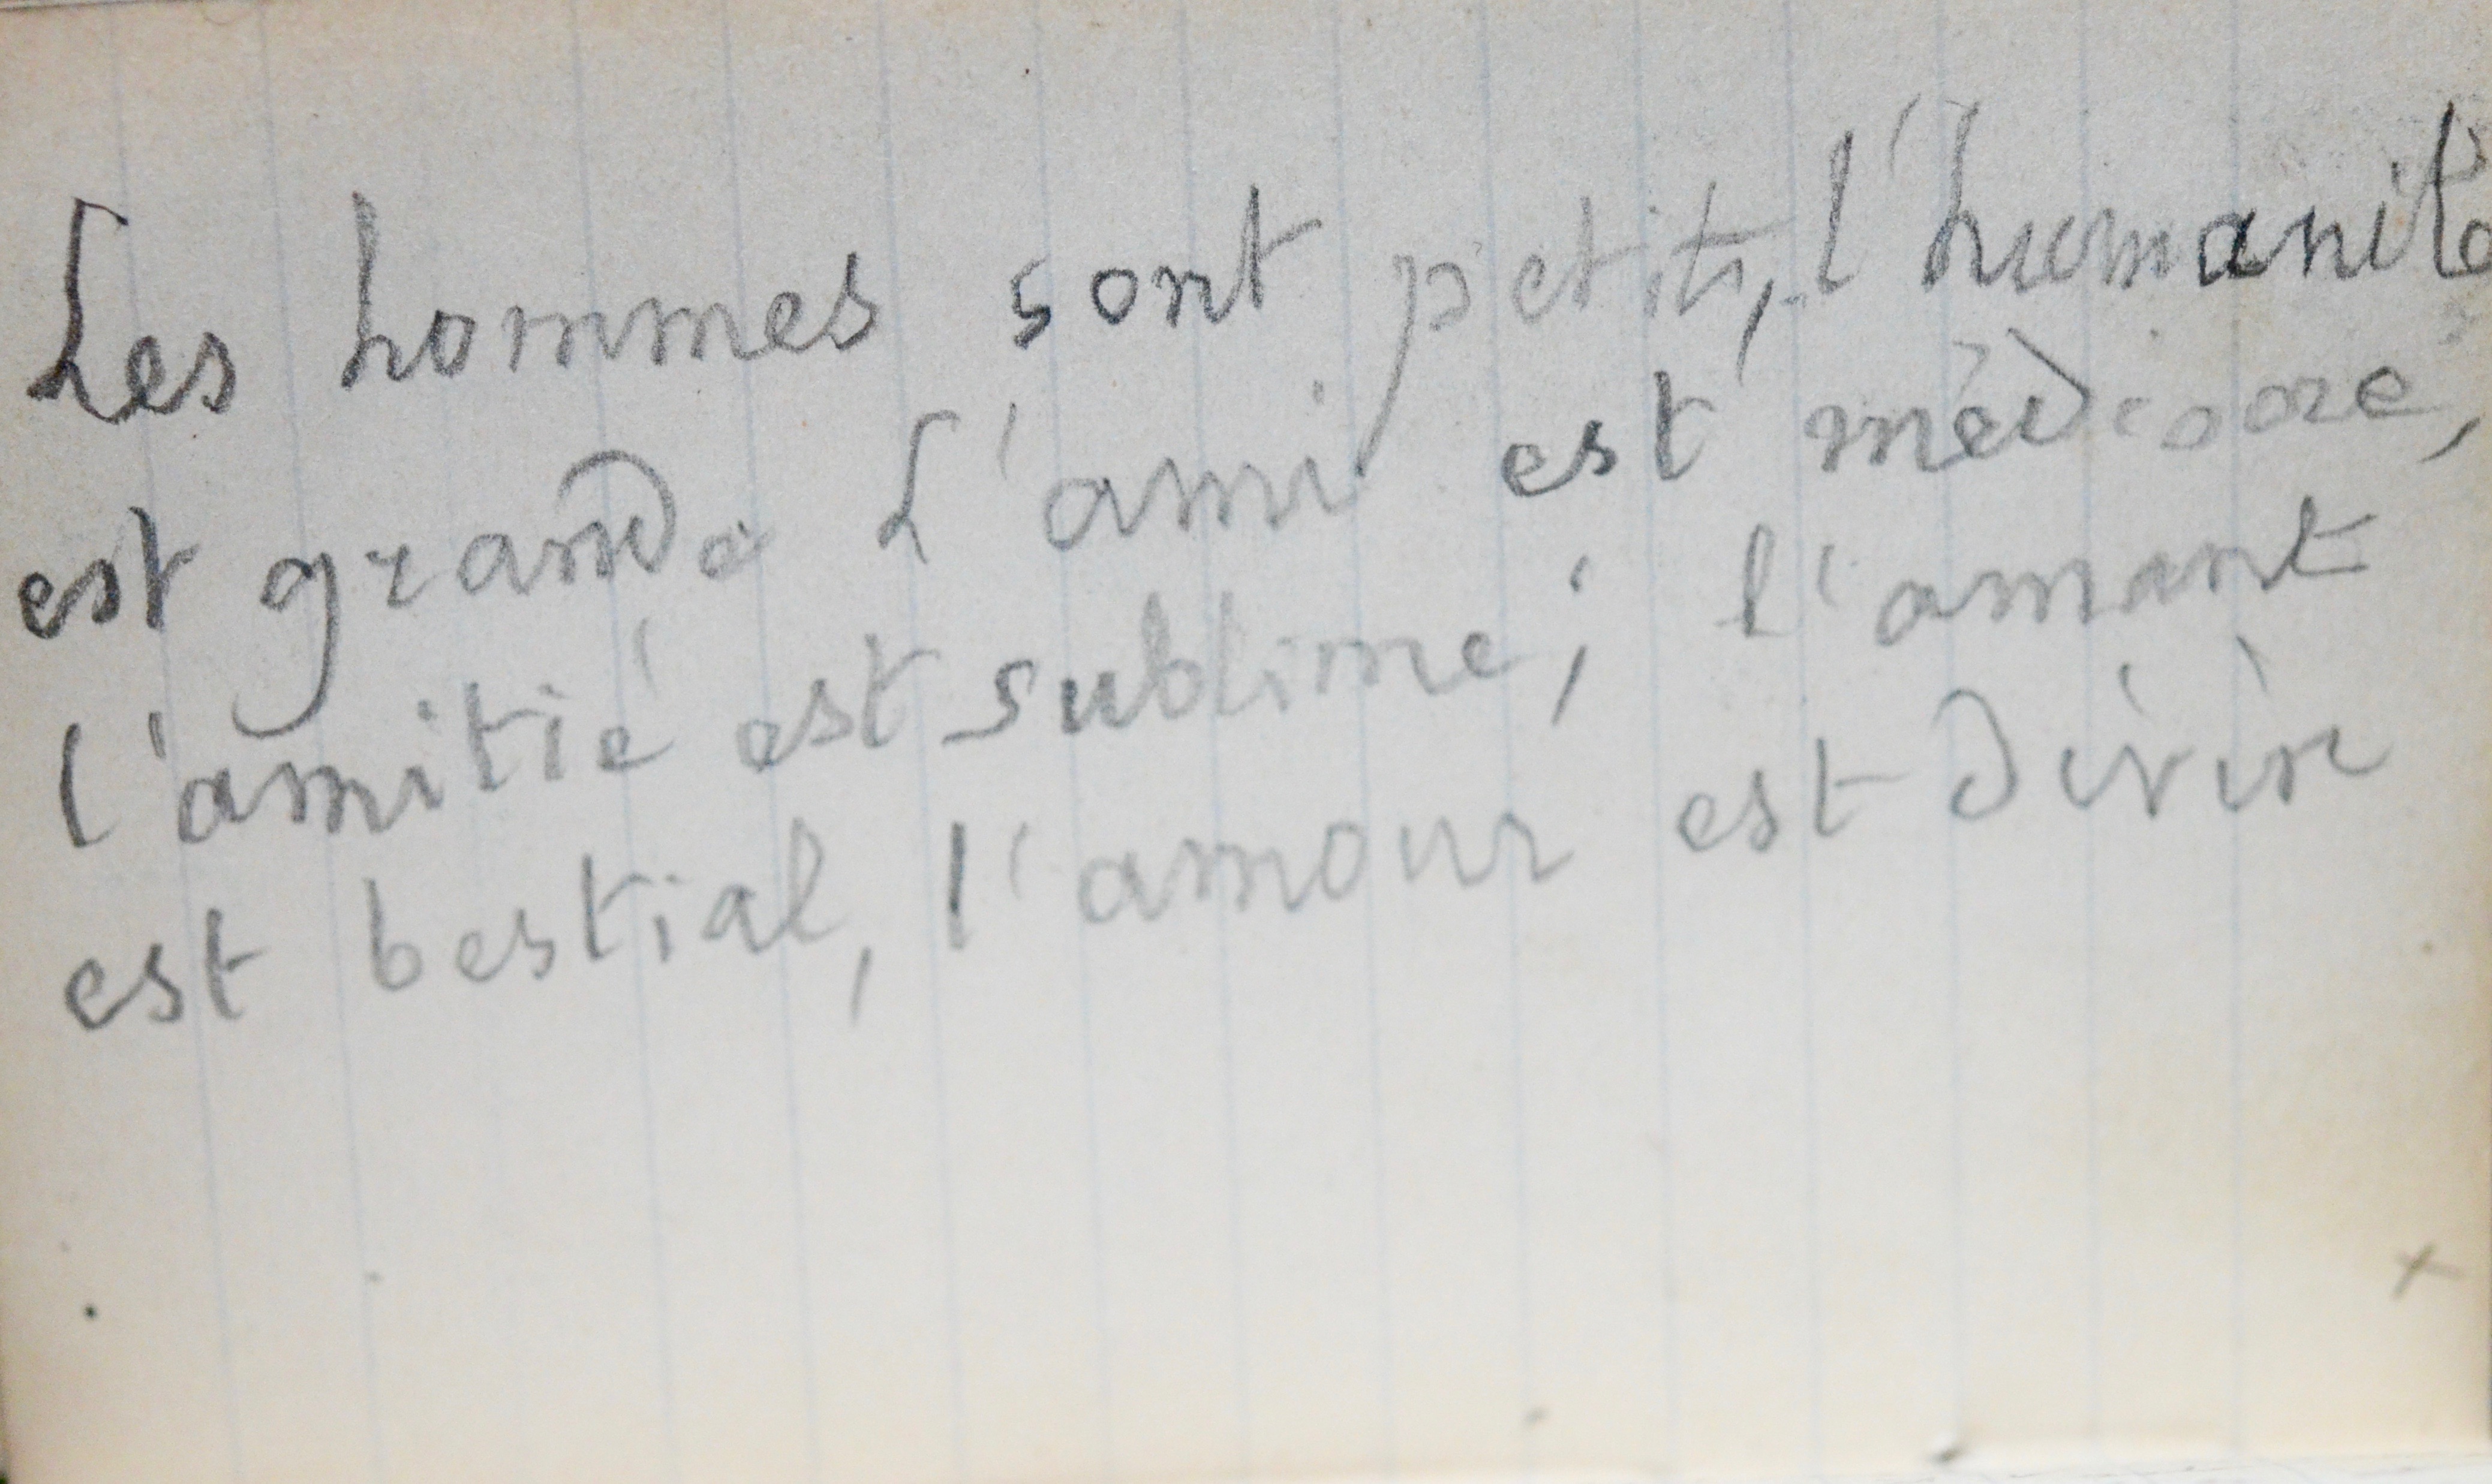 Les hommes sont petits, l'humanité
est grande L'ami est médiocre,
l'amitié est sublime; l'amant
est bestial, l'amour est divin
x